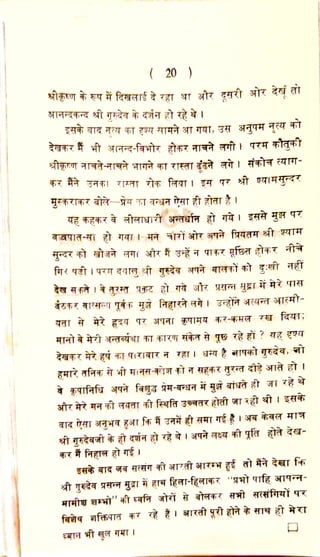 ( 20 )
श्रीकृष्ण के रूप में दिखलाई दे रहा था और दूसरी ओर देखूं तो
आनन्दकन्द श्री गुरुदेव के दर्शन हो रहे थे ।
इसके बाद नृत्य का दृश्य सामने आ गया, उस अनुपम नृत्य को
देखकर मैं भी आनन्द-विभोर होकर नाचने लगी । परम कौतुकी
श्रीकृष्ण नाचते-नाचते भागने का रास्ता ढूंढने लगे । संकोच त्याग-
कर मैंने उनका रास्ता रोक लिया । इस पर श्री श्यामसुन्दर
मुस्कराकर बोले—प्रेम का बन्धन ऐसा ही होता है ।
यह कहकर वे लीलाधारी अन्तर्धान हो गये । इससे मुझ पर
वज्रपात-सा हो गया । मन चारों ओर अपने प्रियतम श्री श्याम
सुन्दर को खोजने लगा और मैं उन्हें न पाकर मूछित होकर नीचे
गिर पड़ी । परम दयालु श्री गुरुदेव अपने बालकों को दुःखी नहीं
देख सकते । वे तुरन्त प्रकट हो गये और प्रसन्न मुद्रा में मेरे पास
बैठकर वात्सल्य पूर्वक मुझे निहारने लगे । उन्होंने अत्यन्त आत्मी-
यता से मेरे हृदय पर अपना कृपामय कर-कमल रख दिया;
मानो वे मेरी अन्तर्व्यथा का कारण संकेत से पूछ रहे हों ? यह दृश्य
देखकर मेरे हर्ष का पारावार न रहा । धन्य है आपको गुरुदेव, जो
हमारे तनिक से भी मानस-क्लेश को न सहकर तुरन्त दौड़े आते हो ।
वे कृपानिधि अपने विशुद्ध प्रेम-बन्धन में मुझे बांधते ही जा रहे थे
और मेरे मन की लयता की स्थिति उच्चतर होती जा रही थी । इसके
बाद ऐसा अनुभव हुआ कि मैं उनमें ही समा गई हूँ । अब केवल मात्र
श्री गुरुदेवजी के ही दर्शन हो रहे थे । अपने लक्ष्य की पूर्ति होते देख-
कर मैं निहाल हो गई ।
इसके बाद जब सत्संग की आरती आरम्भ हुई तो मैंने देखा कि
श्री गुरुदेव प्रसन्न मुद्रा में हाथ हिला-हिलाकर "प्रभो पाहि आपन्न-
मामीश शम्भो" की ध्वनि जोरों से बोलकर सभी सत्संगियों पर
विशेष शक्तिपात कर रहे हैं । आरती पूरी होने के साथ ही मेरा
ध्यान भी खुल गया ।